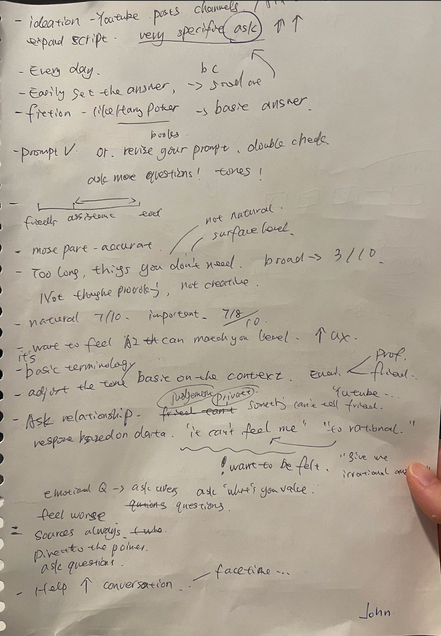 - ideation - Youtube posts channels / ↑↑↑
expand script. very specific ask ↑ ↑
- Every day. bc
- Easily get the answer, → small ask
- fiction - like Harry Poter → basic answer.
books
- prompt V. or. revise your prompt. double check
ask more questions! tones!
-
friendly assistant
- most part - accurate not natural.
surface level.
- Too long, things you don't need. broad → 3/10.
Not thought provoking, not creative.
- natural 7/10. important. 7/8/10
- want to feel AI can match your level. ↑ ux.
it's
- basic terminology
- adjust the tone basic on the context. Email < Prof. friend.
Youtube...
judgement private
- Ask relationship. friend can't somethi can't tell friend.
respose based on data. "it can't feel me" "too rational."
! want to be felt. "give me
irrational
emotional Q → ask users ask "what's you value.
feel worse questions.
= Sources always
ask questions.
- Help ↑ conversation ... facetime ...
John